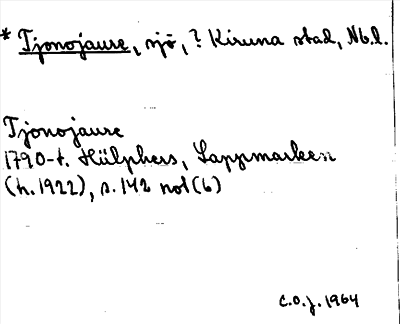 * Tjonojaure, sjö, ? Kiruna stad, Nb.l.
Tjonojaure
1790-t. Hülphers, Lappmarken
(h. 1922), s. 142 not (b)
C.O.J. 1964